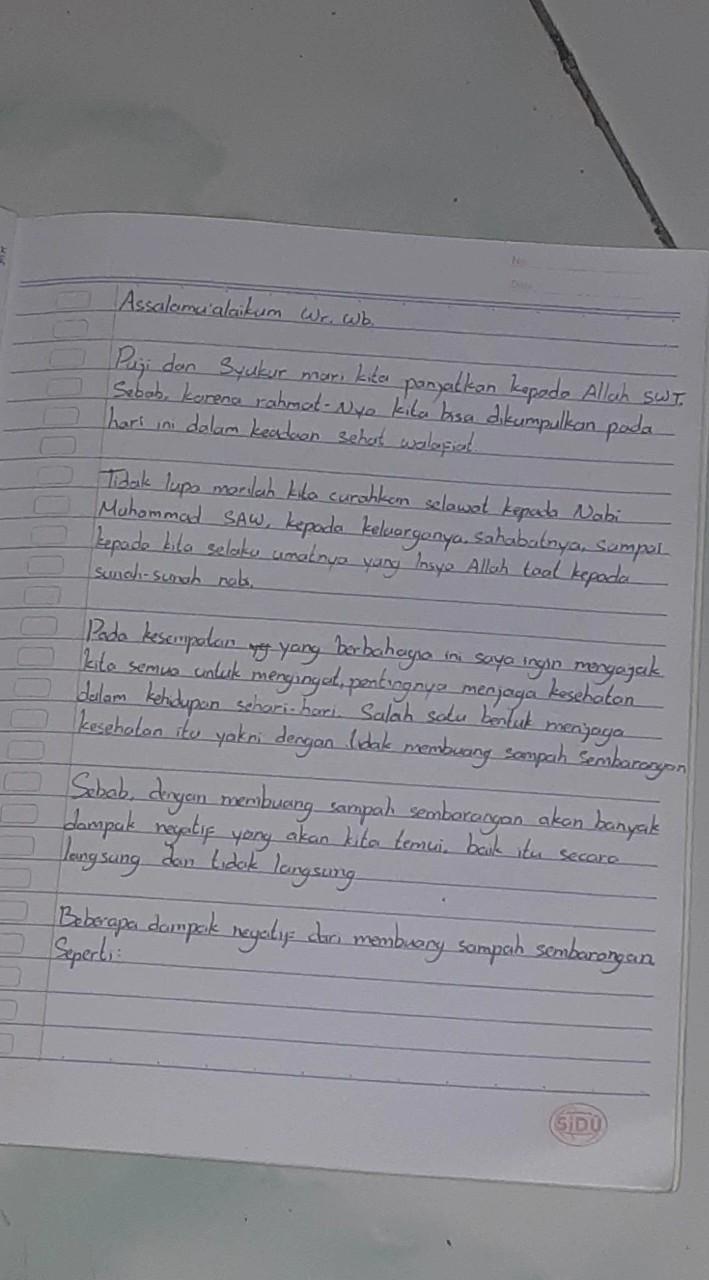 No
Date
Assalamu'alaikum Wr. Wb.
Puji dan Syukur mari kita panjatkan kepada Allah SWT.
Sebab, karena rahmat-Nya kita bisa dikumpulkan pada
hari ini dalam keadaan sehat walafiat.
Tidak lupa marilah kita curahkan selawat kepada Nabi
Muhammad SAW, kepada keluarganya, sahabatnya, sampai
kepada kita selaku umatnya yang Insya Allah taat kepada
sunah-sunah nabi.
Pada kesempatan yang berbahagia ini saya ingin mengajak
kita semua untuk mengingat, pentingnya menjaga kesehatan
dalam kehidupan sehari-hari. Salah satu bentuk menjaga
kesehatan itu yakni dengan tidak membuang sampah sembarangan
Sebab, dengan membuang sampah sembarangan akan banyak
dampak negatif yang akan kita temui. baik itu secara
langsung dan tidak langsung
Beberapa dampak negatif dari membuang sampah sembarangan
Seperti:
SIDU